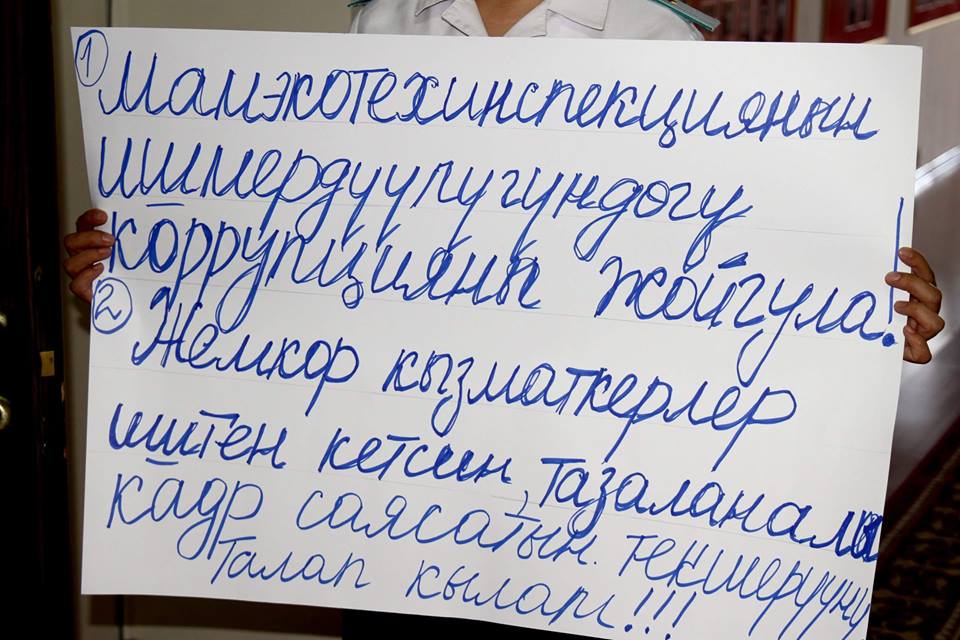 ① Мамэкотехинспекциянын
ишмердүүлүгүндөгү
коррупцияны жойгула!
② Жемкор кызматкерлер
иштен кетсин, тазаланалы
кадр саясатын текшерүүнү
талап кылам!!!